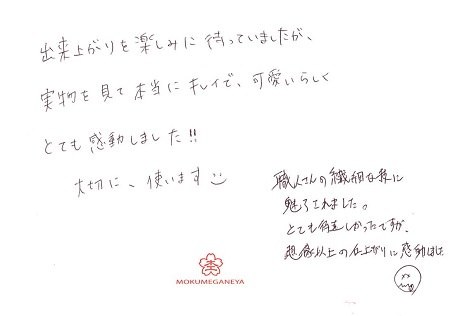 出来上がりを楽しみに待っていましたが、
実物を見て本当にキレイで、可愛いらしく
とても感動しました!!
大切に、使います
職人さんの繊細な技に
魅了されました。
とても待遠しかったですが、
想像以上の仕上がりに感動しました
MOKUMEGANEYA